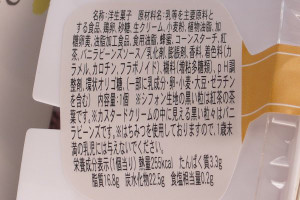 名称:洋生菓子　原材料名:乳等を主要原料と
する食品、鶏卵、砂糖、生クリーム、小麦粉、植物油脂、加
糖卵黄、油脂加工食品、食用油脂、蜂蜜、コーンスターチ、紅
茶、バニラビーンズシーズ／乳化剤、膨脹剤、香料、着色料(カ
ラメル、カロチン、フラボノイド)、糊料(増粘多糖類)、pH調
整剤、環状オリゴ糖、(一部に乳成分・卵・小麦・大豆・ゼラチン
を含む)　内容量:1個　※シフォン生地の黒い粒は紅茶の茶
葉です。※カスタードクリームの中に見える黒い粒々はバ
ニラビーンズです。※はちみつを使用しておりますので、1歳未
満の乳児には与えないでください。
栄養成分表示(1個当り)熱量255kcal　たんぱく質3.3g
脂質16.8g　炭水化物22.5g　食塩相当量0.2g